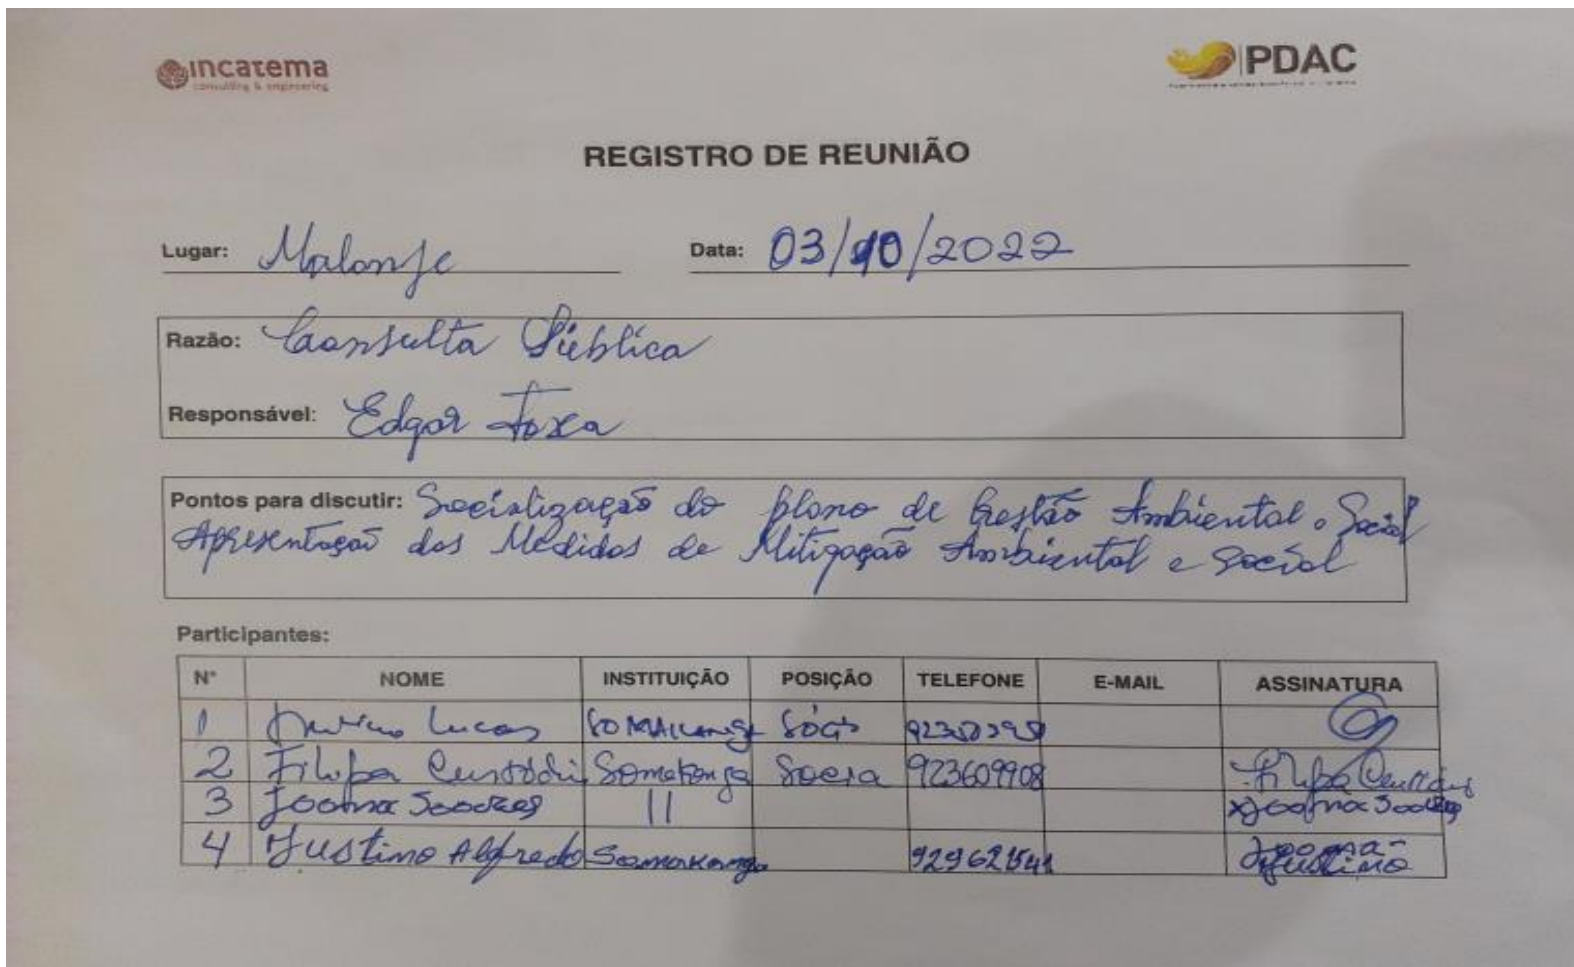 incatema
consulting & engineering
PDAC
REGISTRO DE REUNIÃO
Lugar: Malanje Data: 03/10/2022
Razão: Consulta Pública
Responsável: Edgar Foxa
Pontos para discutir: Socialização do plano de Gestão Ambiental e Social
Apresentação das Medidas de Mitigação Ambiental e Social
Participantes:
N° NOME INSTITUIÇÃO POSIÇÃO TELEFONE E-MAIL ASSINATURA
1 Lucas Sócio
2 Filipa Custódio Somakanga Socia 923609908 Filipa Custódio
3 Joana Soares 11 Joana Soares
4 Justino Alfredo Somakanga 929621541 Justino